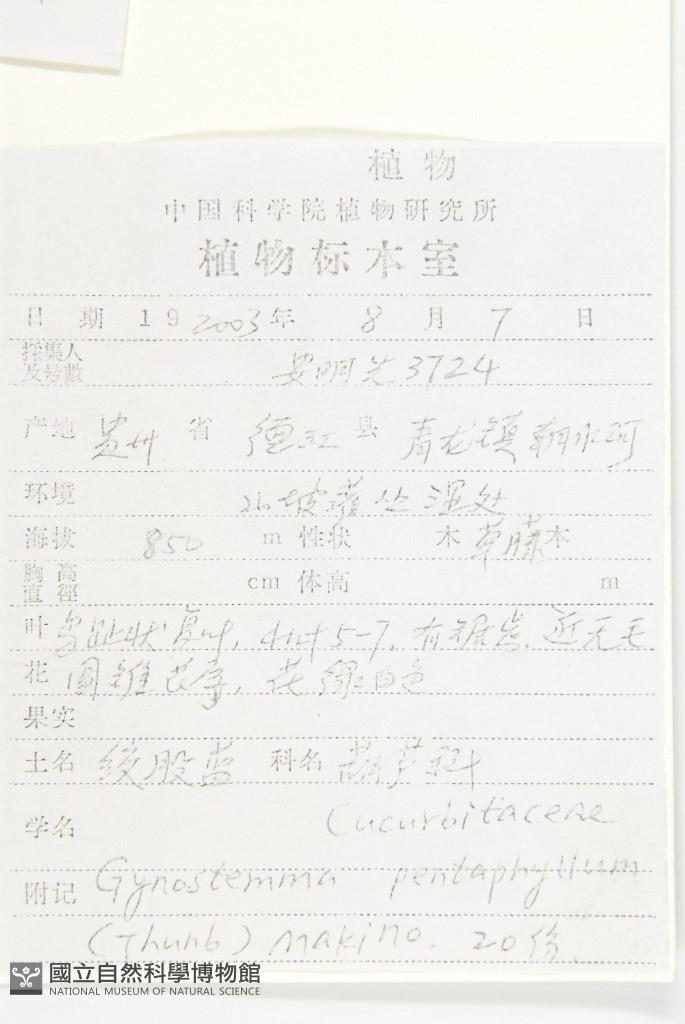 植物
中国科学院植物研究所
植物标本室
日期 19 2003年 8月 7日
採集人及号數 安明先 3724
产地 贵州省 德江县 青龙镇朝水河
环境 山坡灌丛湿处
海拔 850 m 性状 木草藤本
胸高直徑 cm 体高 m
叶 鸟趾状复叶, 小叶5-7, 有锯齿, 近无毛
花 圆锥花序, 花绿白色
果实
土名 绞股蓝 科名 葫芦科
学名 Cucurbitaceae
附记 Gynostemma pentaphyllum
(Thunb) makino. 20份.
國立自然科學博物館
NATIONAL MUSEUM OF NATURAL SCIENCE